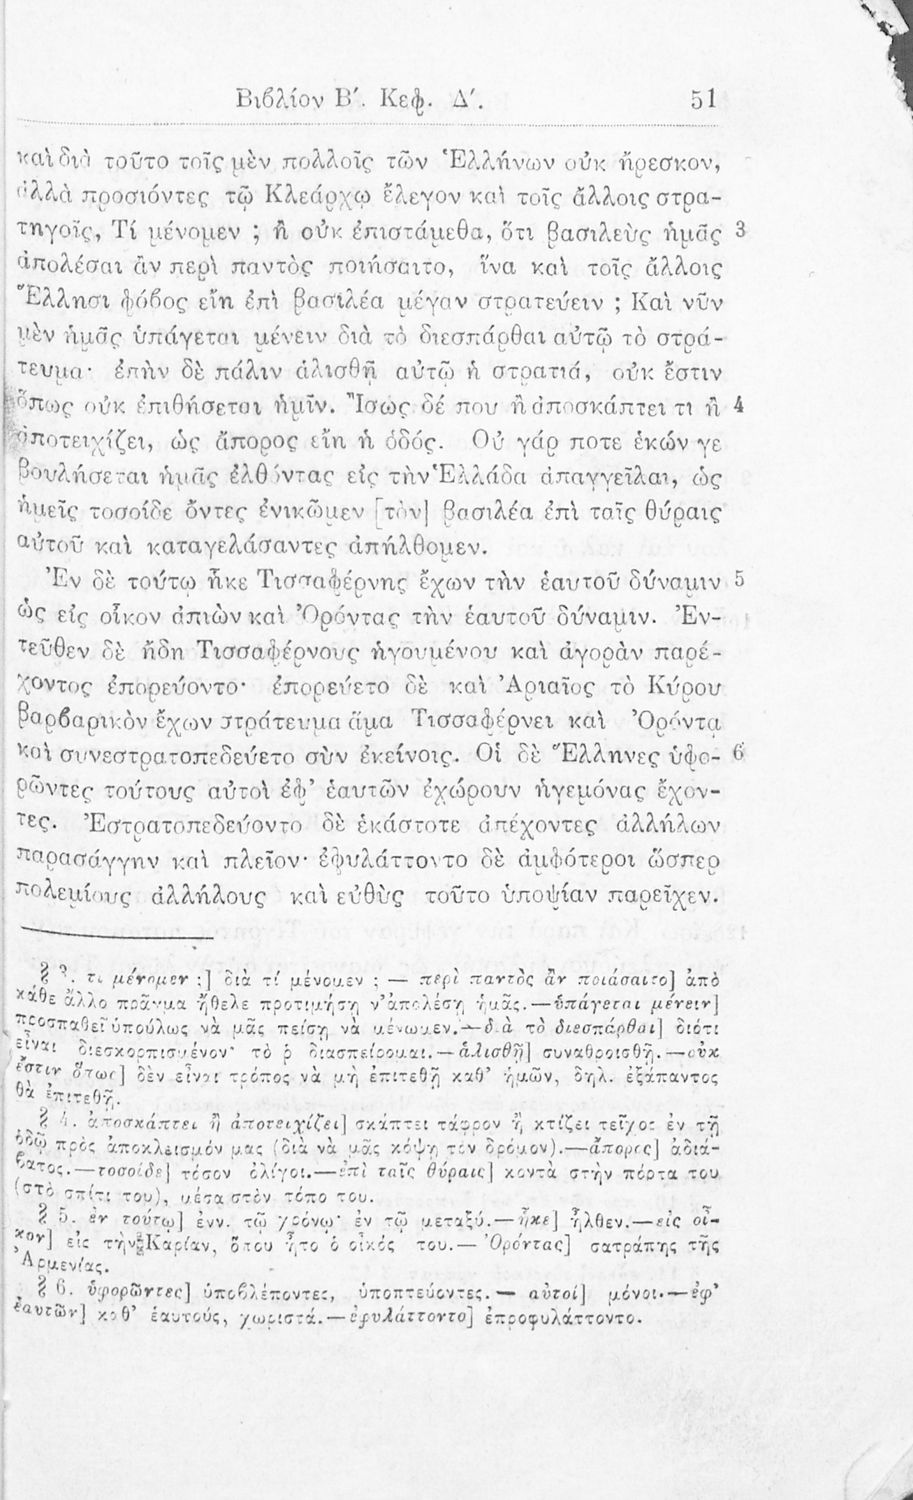 Βιβλίον Β΄. Κεφ. Δ΄. 51
καὶ διὰ τοῦτο τοῖς μὲν πολλοῖς τῶν Ἑλλήνων οὐκ ἤρεσκον,
ἀλλὰ προσιόντες τῷ Κλεάρχῳ ἔλεγον καὶ τοῖς ἄλλοις στρα-
τηγοῖς, Τί μένομεν ; ἢ οὐκ ἐπιστάμεθα, ὅτι βασιλεὺς ἡμᾶς 3
ἀπολέσαι ἂν περὶ παντὸς ποιήσαιτο, ἵνα καὶ τοῖς ἄλλοις
Ἕλλησι φόβος εἴη ἐπὶ βασιλέα μέγαν στρατεύειν ; Καὶ νῦν
μὲν ἡμᾶς ὑπάγεται μένειν διὰ τὸ διεσπάρθαι αὐτῷ τὸ στρά-
τευμα· ἐπὴν δὲ πάλιν ἁλισθῇ αὐτῷ ἡ στρατιά, οὐκ ἔστιν
ὅπως οὐκ ἐπιθήσεται ἡμῖν. Ἴσως δέ που ἢ ἀποσκάπτει τι ἢ 4
ἀποτειχίζει, ὡς ἄπορος εἴη ἡ ὁδός. Οὐ γάρ ποτε ἑκών γε
βουλήσεται ἡμᾶς ἐλθόντας εἰς τὴν Ἑλλάδα ἀπαγγεῖλαι, ὡς
ἡμεῖς τοσοίδε ὄντες ἐνικῶμεν [τὸν] βασιλέα ἐπὶ ταῖς θύραις
αὐτοῦ καὶ καταγελάσαντες ἀπήλθομεν.
Ἐν δὲ τούτῳ ἧκε Τισσαφέρνης ἔχων τὴν ἑαυτοῦ δύναμιν 5
ὡς εἰς οἶκον ἀπιὼν καὶ Ὀρόντας τὴν ἑαυτοῦ δύναμιν. Ἐν-
τεῦθεν δὲ ἤδη Τισσαφέρνους ἡγουμένου καὶ ἀγορὰν παρέ-
χοντος ἐπορεύοντο· ἐπορεύετο δὲ καὶ Ἀριαῖος τὸ Κύρου
βαρβαρικὸν ἔχων στράτευμα ἅμα Τισσαφέρνει καὶ Ὀρόντᾳ
καὶ συνεστρατοπεδεύετο σὺν ἐκείνοις. Οἱ δὲ Ἕλληνες ὑφο- 6
ρῶντες τούτους αὐτοὶ ἐφ' ἑαυτῶν ἐχώρουν ἡγεμόνας ἔχον-
τες. Ἐστρατοπεδεύοντο δὲ ἑκάστοτε ἀπέχοντες ἀλλήλων
παρασάγγην καὶ πλεῖον· ἐφυλάττοντο δὲ ἀμφότεροι ὥσπερ
πολεμίους ἀλλήλους καὶ εὐθὺς τοῦτο ὑποψίαν παρεῖχεν.
§ 3. τι μένομεν ;] διὰ τί μένομεν ; — περὶ παντὸς ἂν ποιάσαιτο] ἀπὸ
κάθε ἄλλο πρᾶγμα ἤθελε προτιμήσῃ ν' ἀπολέσῃ ἡμᾶς.—ὑπάγεται μένειν]
προσπαθεῖ ὑπούλως νὰ μᾶς πείσῃ νὰ μένωμεν.—διὰ τὸ διεσπάρθαι] διότι
εἶναι διεσκορπισμένον· τὸ ῥ διασπείρομαι.—ἁλισθῇ] συναθροισθῇ.—οὐκ
ἔστιν ὅπως] δὲν εἶναι τρόπος νὰ μὴ ἐπιτεθῇ καθ' ἡμῶν, δηλ. ἐξάπαντος
θὰ ἐπιτεθῇ.
§ 4. ἀποσκάπτει ἢ ἀποτειχίζει] σκάπτει τάφρον ἢ κτίζει τεῖχος ἐν τῇ
ὁδῷ πρὸς ἀποκλεισμόν μας (διὰ νὰ μᾶς κόψῃ τὸν δρόμον).—ἄπορος] ἀδιά-
βατος.—τοσοίδε] τόσον ὀλίγοι.—ἐπὶ ταῖς θύραις] κοντὰ στὴν πόρτα του
(στὸ σπίτι του), μέσα στὸν τόπο του.
§ 5. ἐν τούτῳ] ἐνν. τῷ χρόνῳ· ἐν τῷ μεταξύ.—ἧκε] ἦλθεν.—εἰς οἶ-
κον] εἰς τὴν Καρίαν, ὅπου ἦτο ὁ οἶκός του.— Ὀρόντας] σατράπης τῆς
Ἀρμενίας.
§ 6. ὑφορῶντες] ὑποβλέποντες, ὑποπτεύοντες.— αὐτοί] μόνοι.—ἐφ'
ἑαυτῶν] καθ' ἑαυτούς, χωριστά.—ἐφυλάττοντο] ἐπροφυλάττοντο.